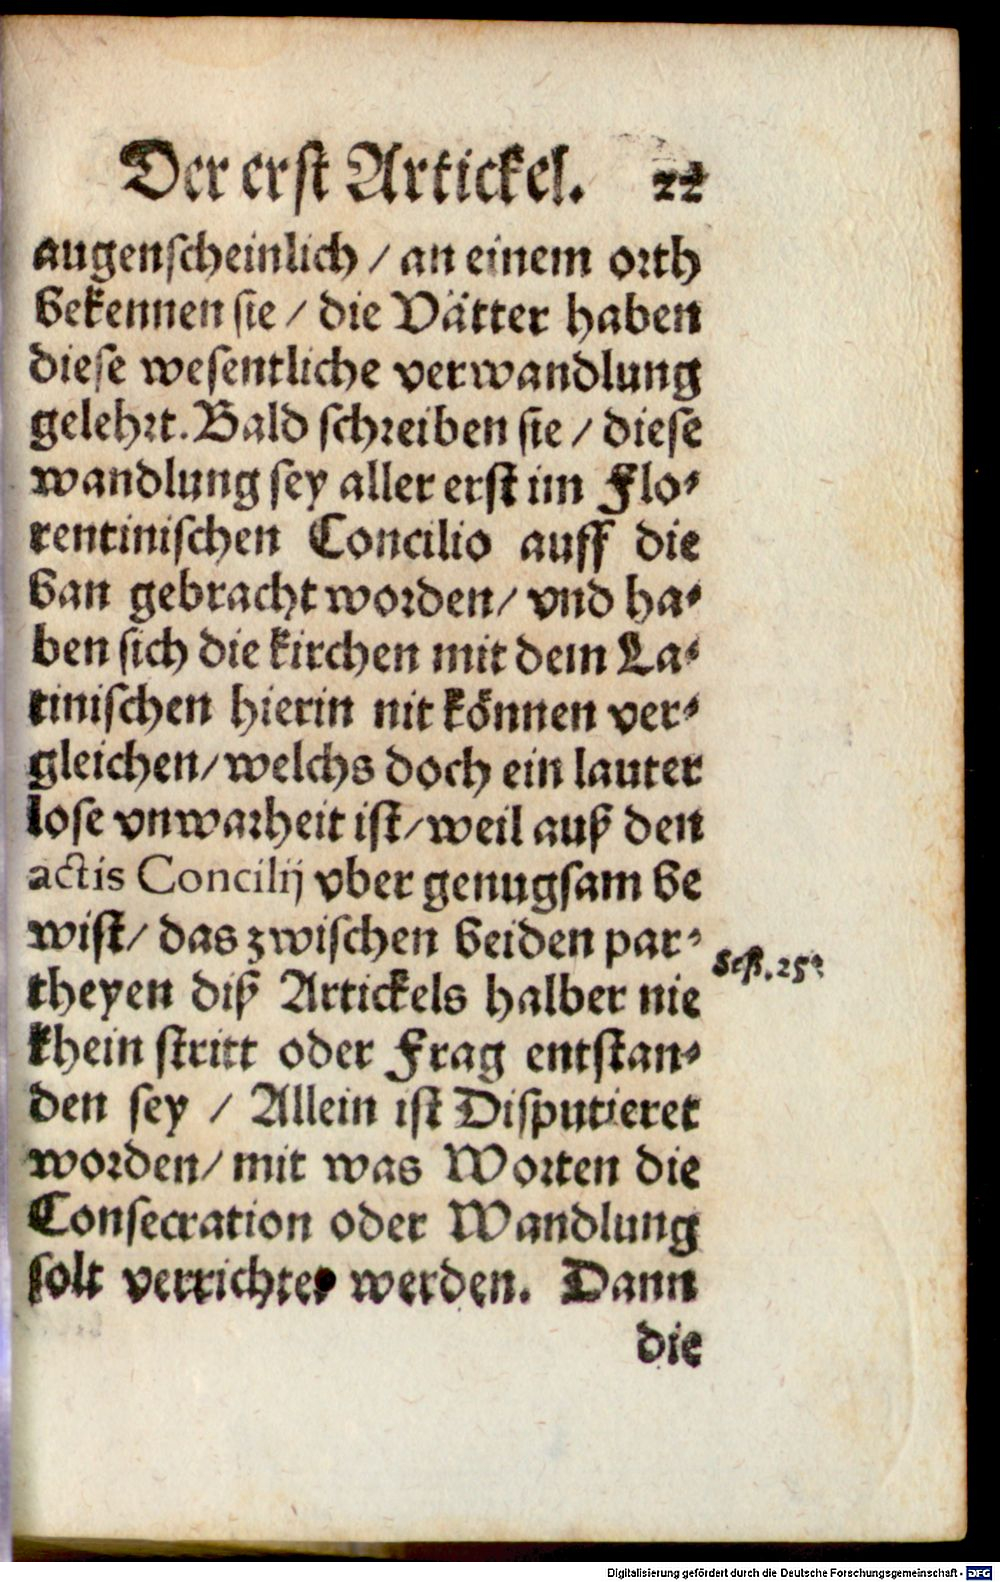 Der erst Artickel. 22
augenscheinlich / an einem orth
bekennen sie / die Vätter haben
diese wesentliche verwandlung
gelehrt. Bald schreiben sie / diese
wandlung sey aller erst im Flo⸗
rentinischen Concilio auff die
ban gebracht worden / vnd ha⸗
ben sich die kirchen mit dem La⸗
tinischen hierin nit können ver⸗
gleichen / welchs doch ein lauter
lose vnwarheit ist / weil auß den
actis Concilij vber genugsam be
wist / das zwischen beiden par⸗
theyen diß Artickels halber nie
khein stritt oder Frag entstan⸗
den sey / Allein ist Disputieret
worden / mit was Worten die
Consecration oder Wandlung
solt verrichtet werden. Dann
die
Seß. 25.
Digitalisierung gefördert durch die Deutsche Forschungsgemeinschaft - DFG